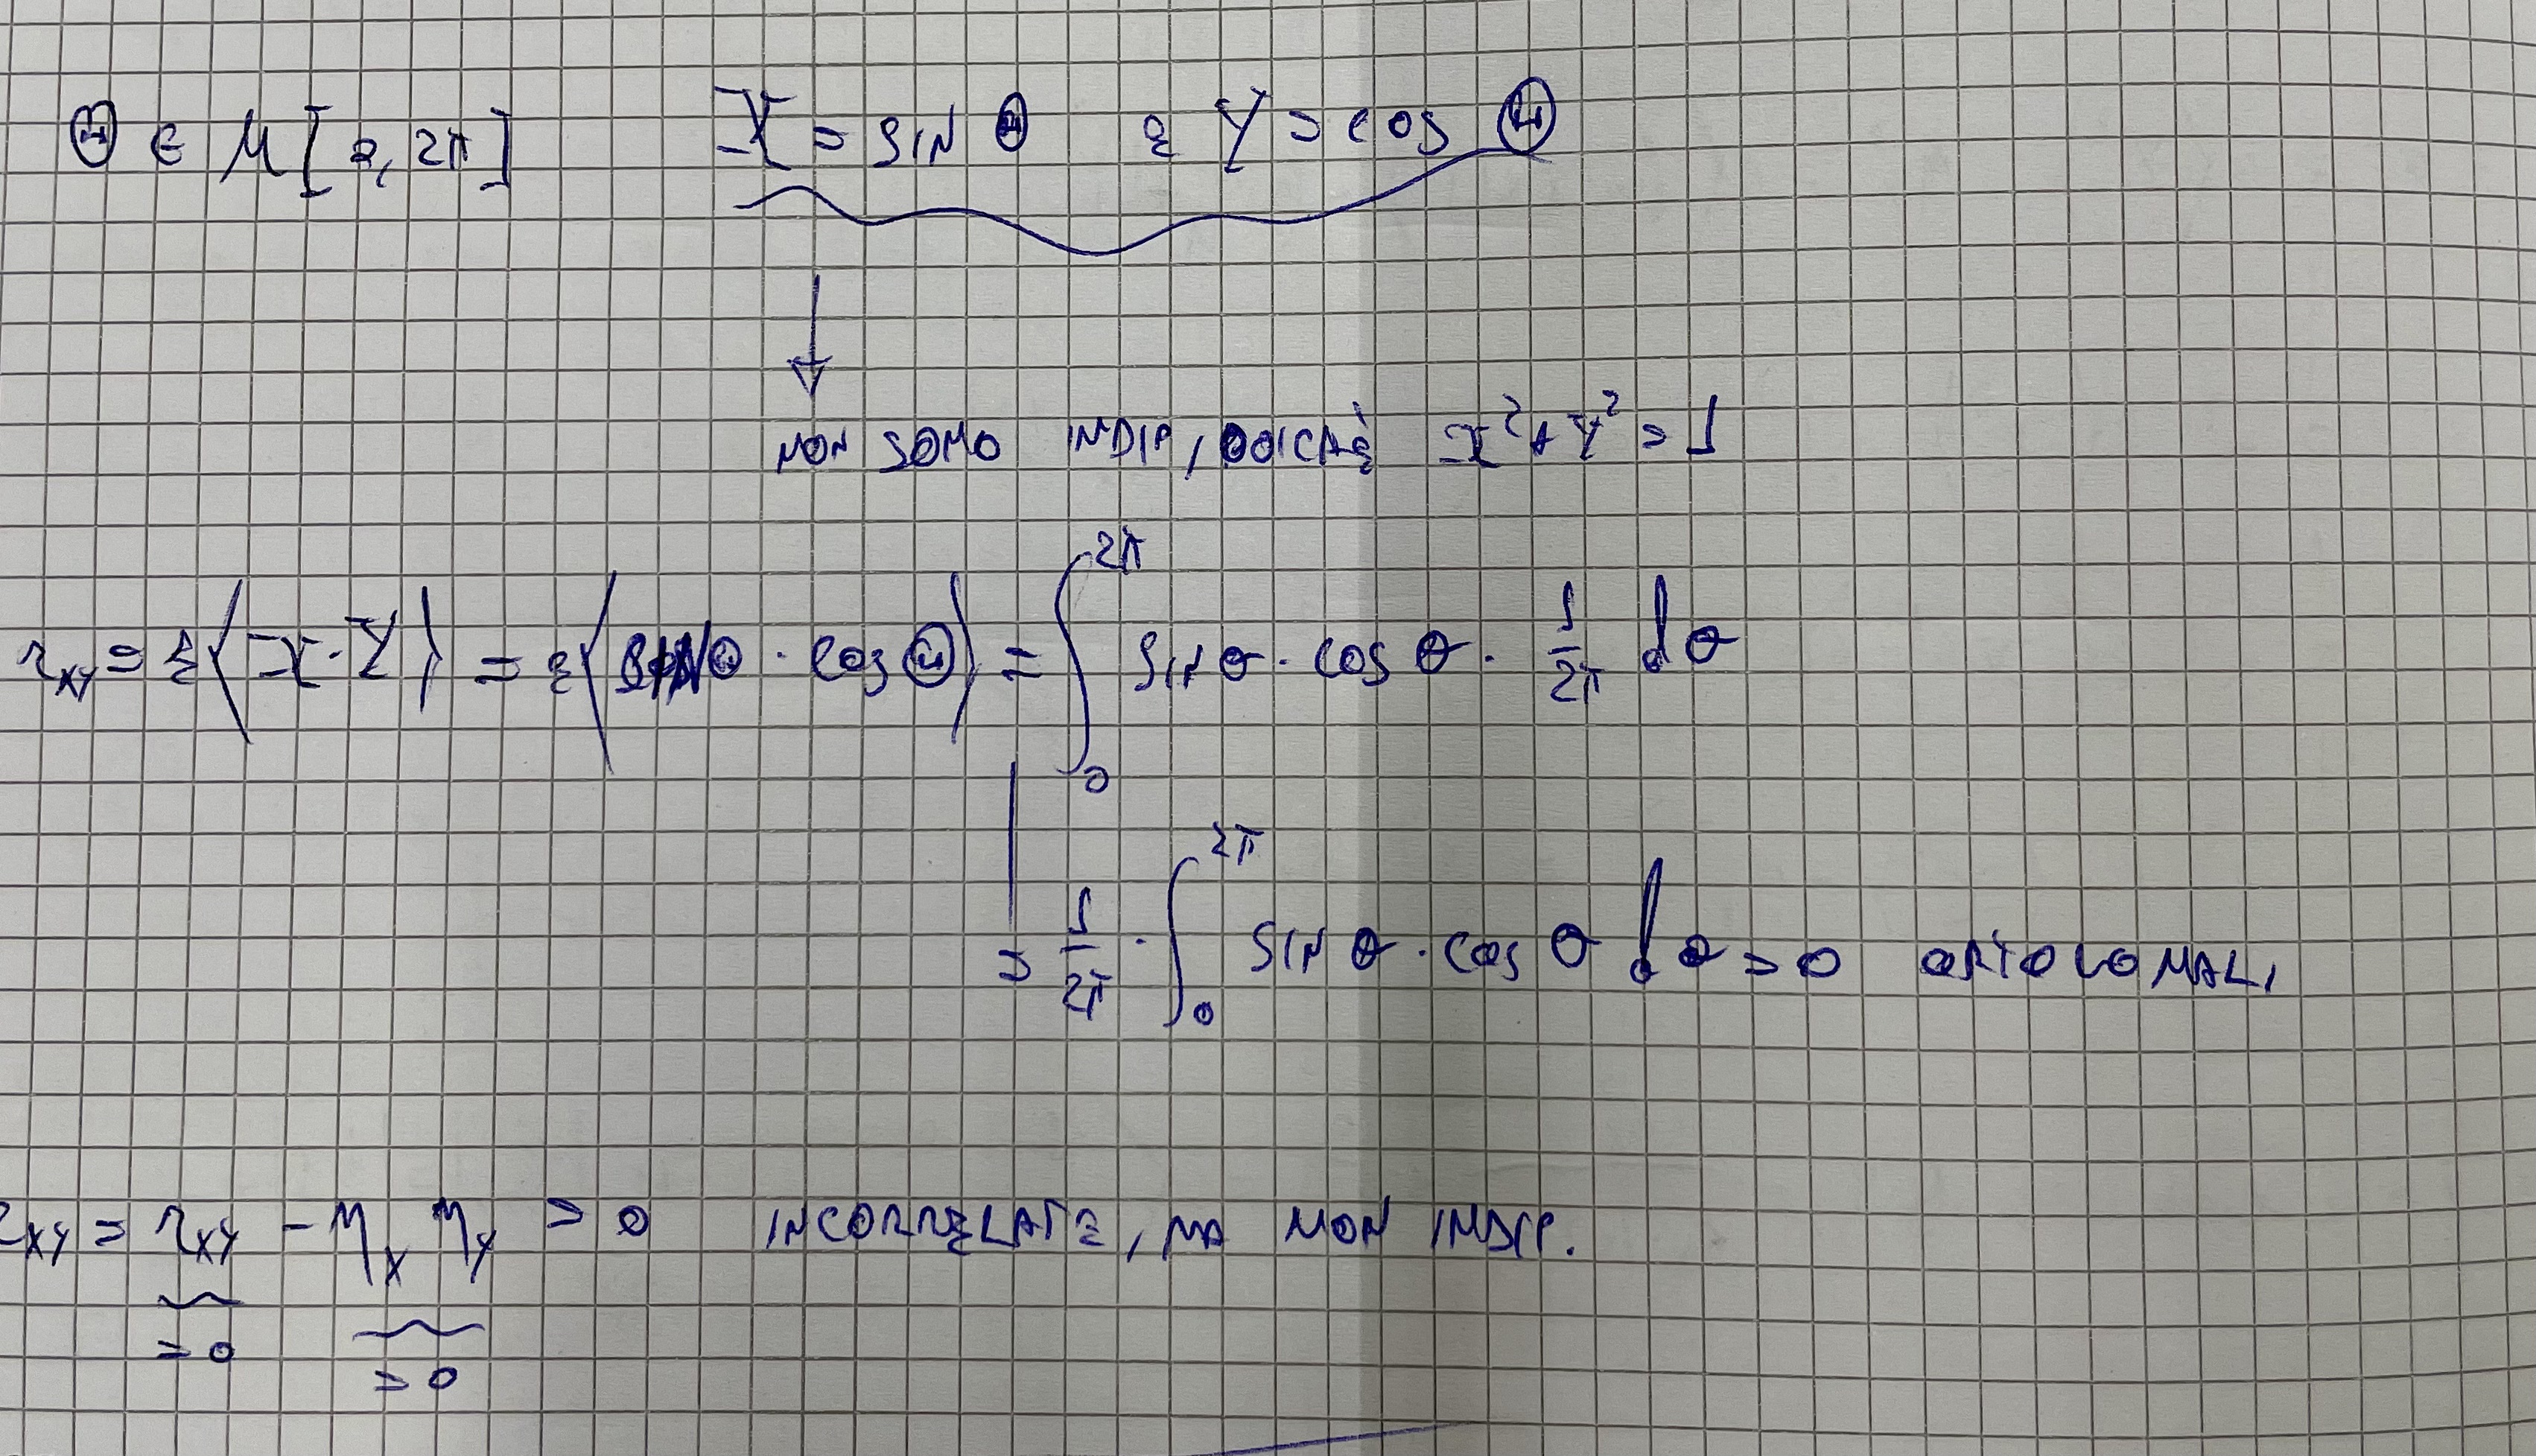 Θ ∈ U[0, 2π] X = SIN Θ e Y = COS Θ
NON SONO INDIP, POICHÈ X² + Y² = 1
r_XY = E⟨X·Y⟩ = E⟨SIN Θ · COS Θ⟩ = ∫₀^2π SIN θ · COS θ · 1/2π dθ
= 1/2π · ∫₀^2π SIN θ · COS θ dθ = 0 ORTOGONALI
c_XY = r_XY − η_X η_Y = 0 INCORRELATE, MA NON INDIP.
= 0 = 0